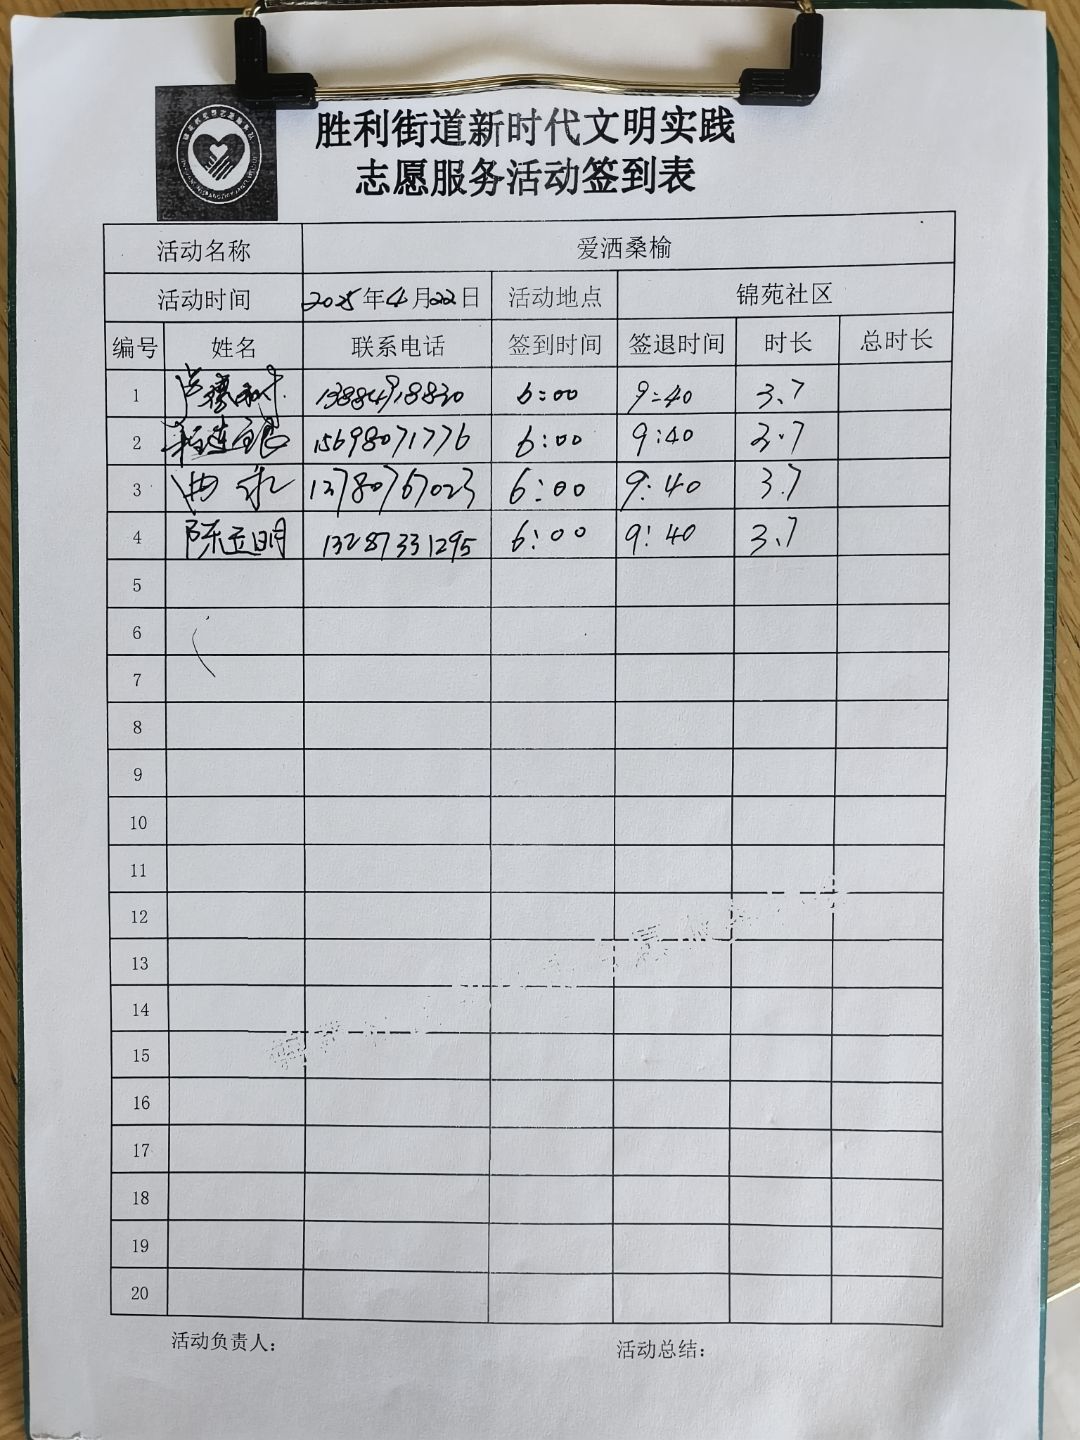 胜利街道新时代文明实践
志愿服务活动签到表
活动名称 爱洒桑榆
活动时间 2025年4月22日 活动地点 锦苑社区
编号 姓名 联系电话 签到时间 签退时间 时长 总时长
1 13884918830 6:00 9:40 3.7
2 15698071776 6:00 9:40 3.7
3 曲永 13780767023 6:00 9:40 3.7
4 陈立明 13287331295 6:00 9:40 3.7
5
6
7
8
9
10
11
12
13
14
15
16
17
18
19
20
活动负责人： 活动总结：